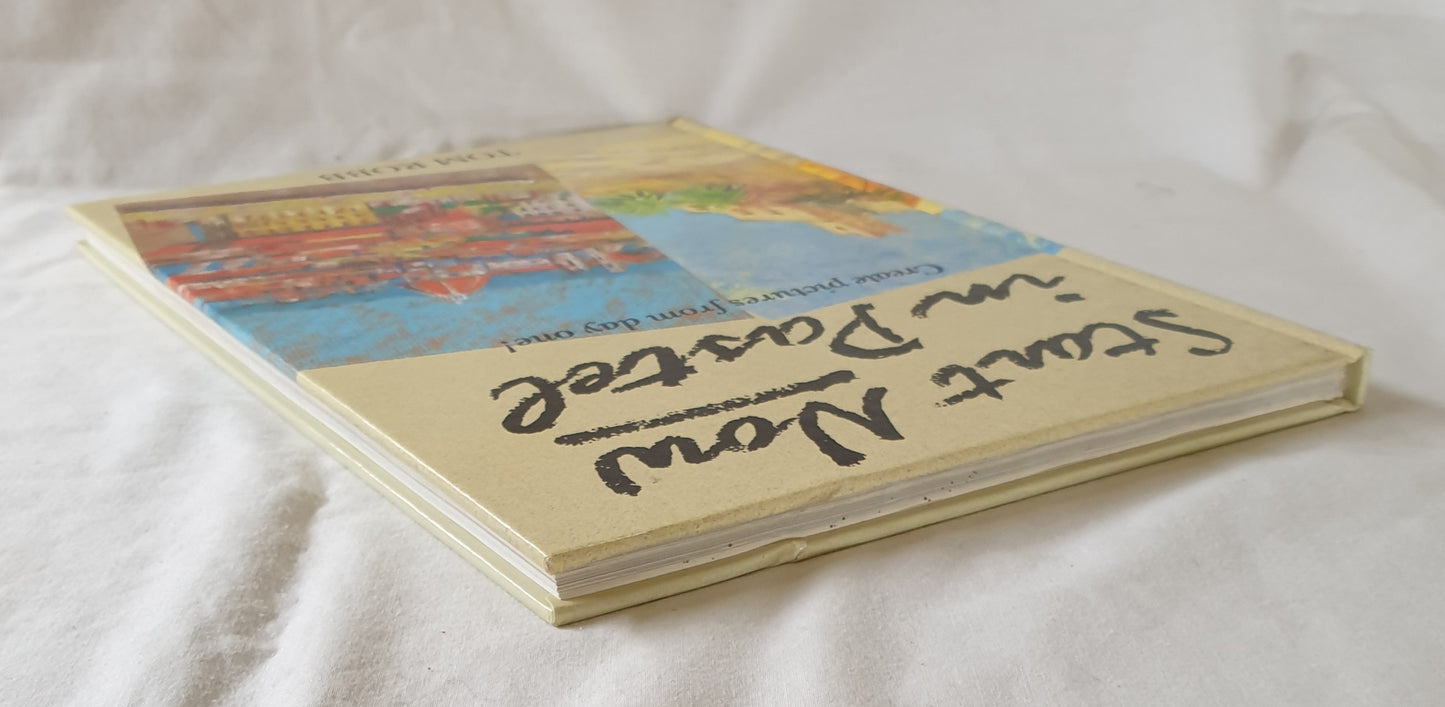 Start Now
in Pastel
Create pictures from day one!
TOM ROBB